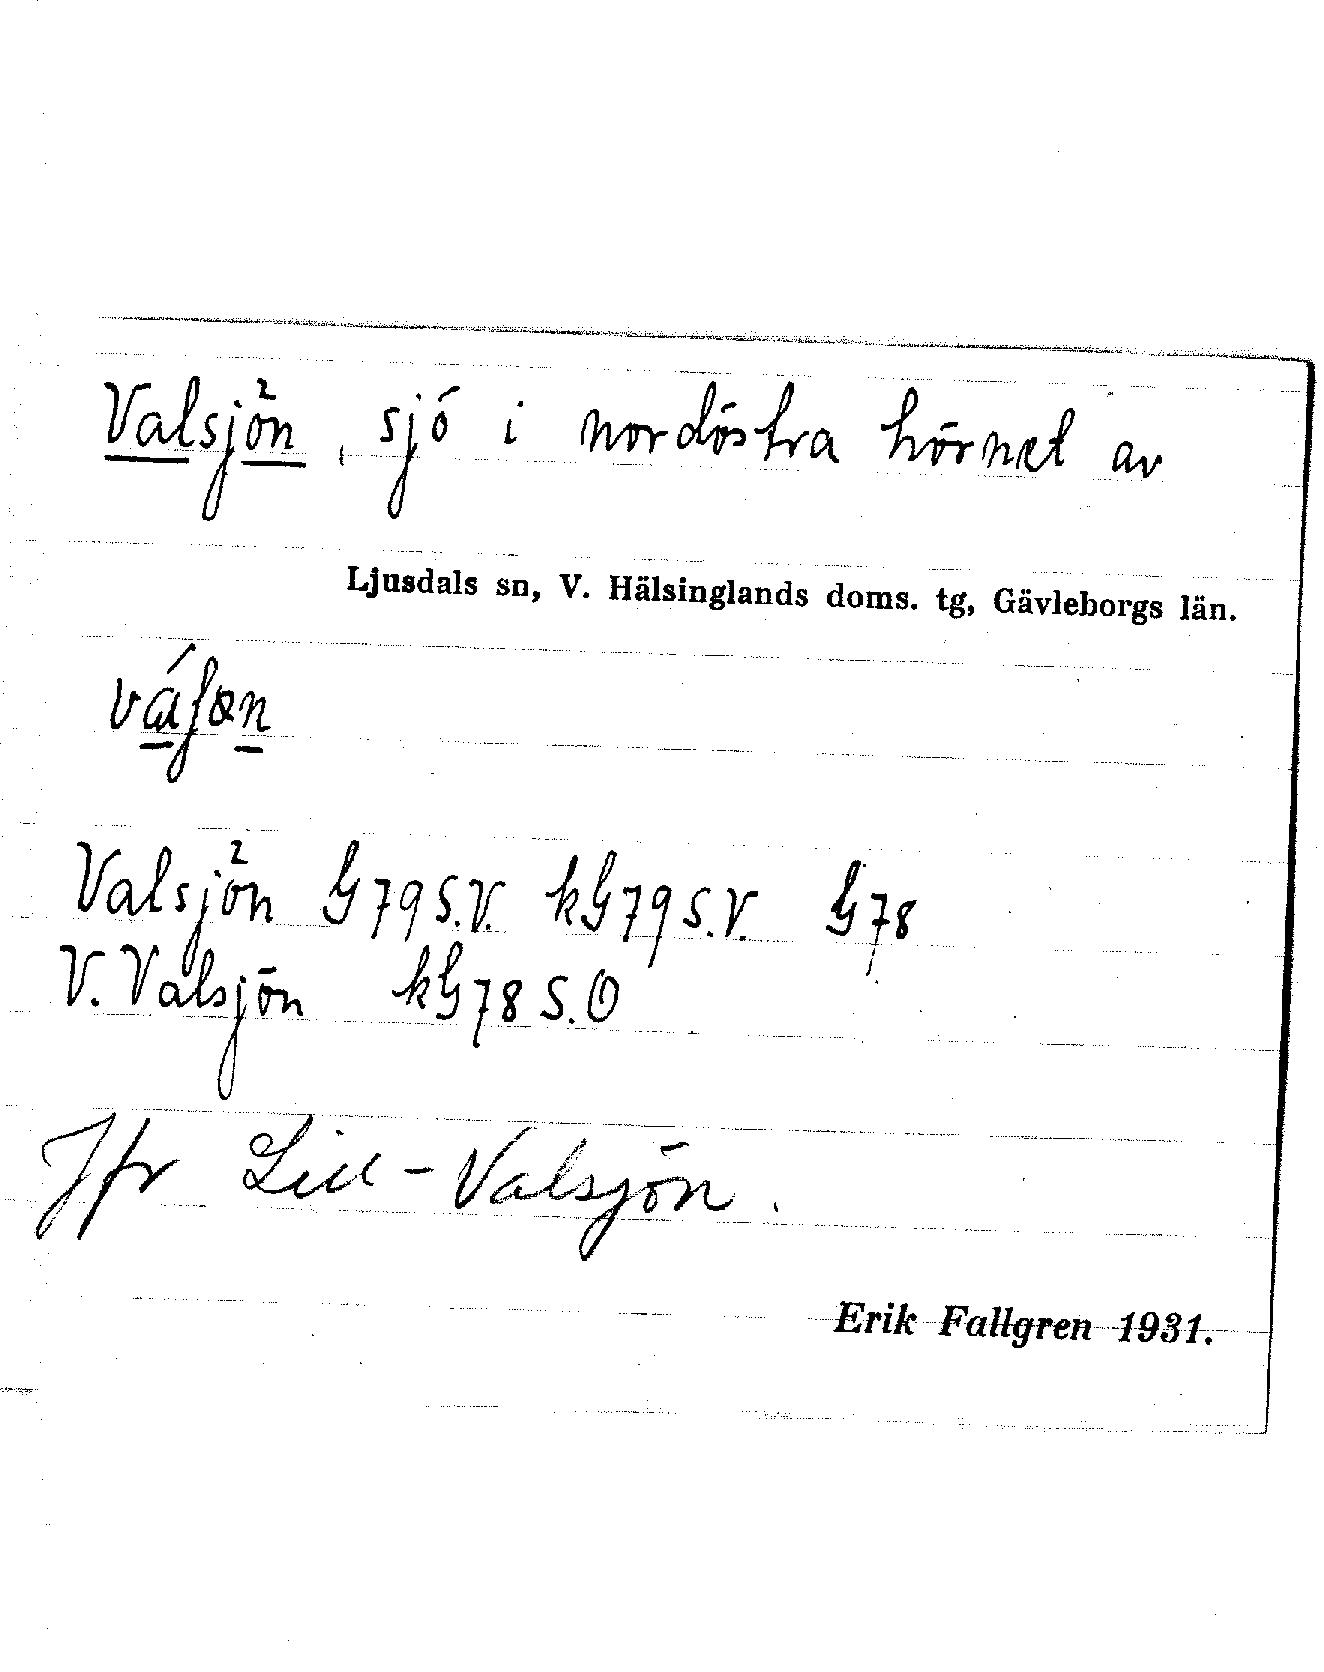 Valsjön, sjö i nordöstra hörnet av
Ljusdals sn, V. Hälsinglands doms. tg, Gävleborgs län.
Valsjön G79 S.V. kG79 S.V. G78
V. Valsjön kG78 S.O
Jfr Lill-Valsjön.
Erik Fallgren 1931.